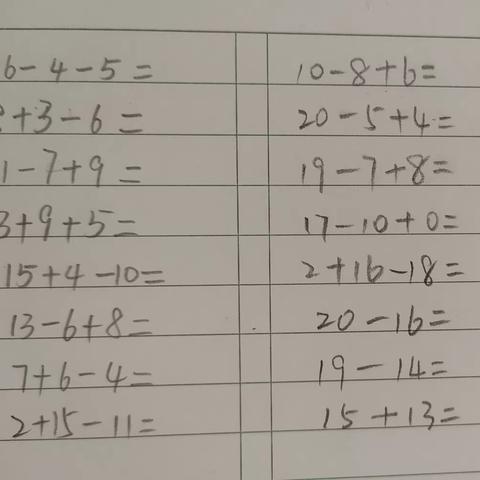 6-4-5=
+3-6=
1-7+9=
3+9+5=
15+4-10=
13-6+8=
7+6-4=
2+15-11=
10-8+6=
20-5+4=
19-7+8=
17-10+0=
2+16-18=
20-16=
19-14=
15+13=